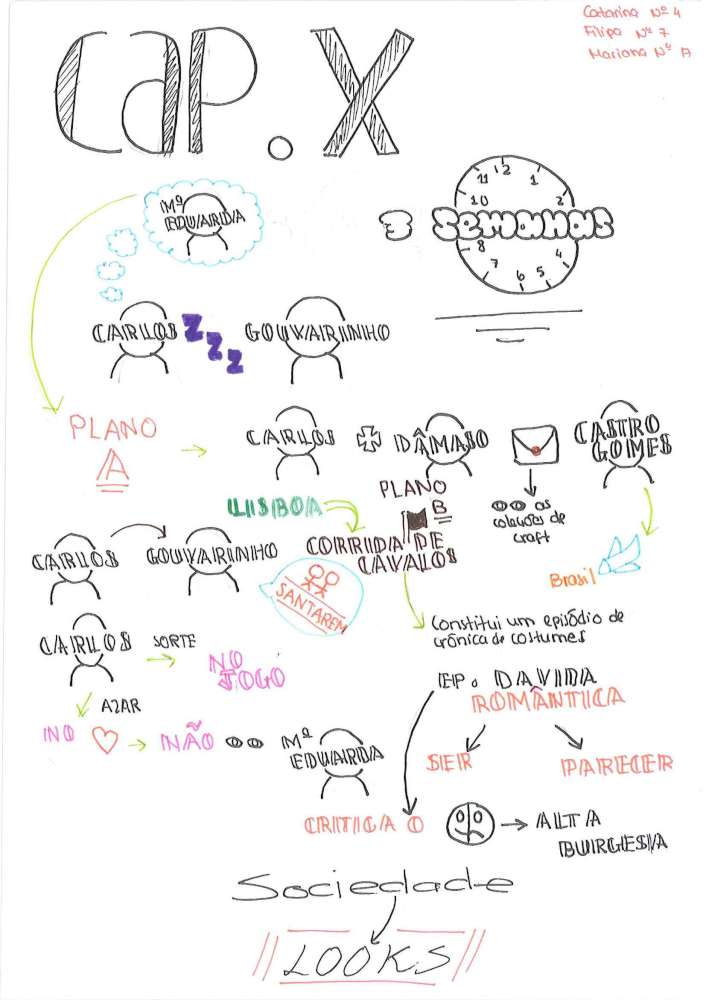 Catarina Nº 4
Filipa Nº 7
Mariana Nº
CAP. X
Mª
EDUARDA
3 SEMANAS
11 12 1
10 2
8
7 6 5 4
CARLOS Z Z Z GOUVARINHO
PLANO
A
CARLOS + DÂMASO
CASTRO
GOMES
PLANO
B
LISBOA
CORRIDA DE
CAVALOS
as
coleções de
craft
CARLOS GOUVARINHO
SANTAREM
Brasil
Constitui um episódio de
crônica de costumes
CARLOS SORTE NO
JOGO
AZAR
NO NÃO Mª
EDUARDA
EP. DA VIDA
ROMÂNTICA
SER PARECER
CRITICA O ALTA
BURGESIA
Sociedade
LOOKS